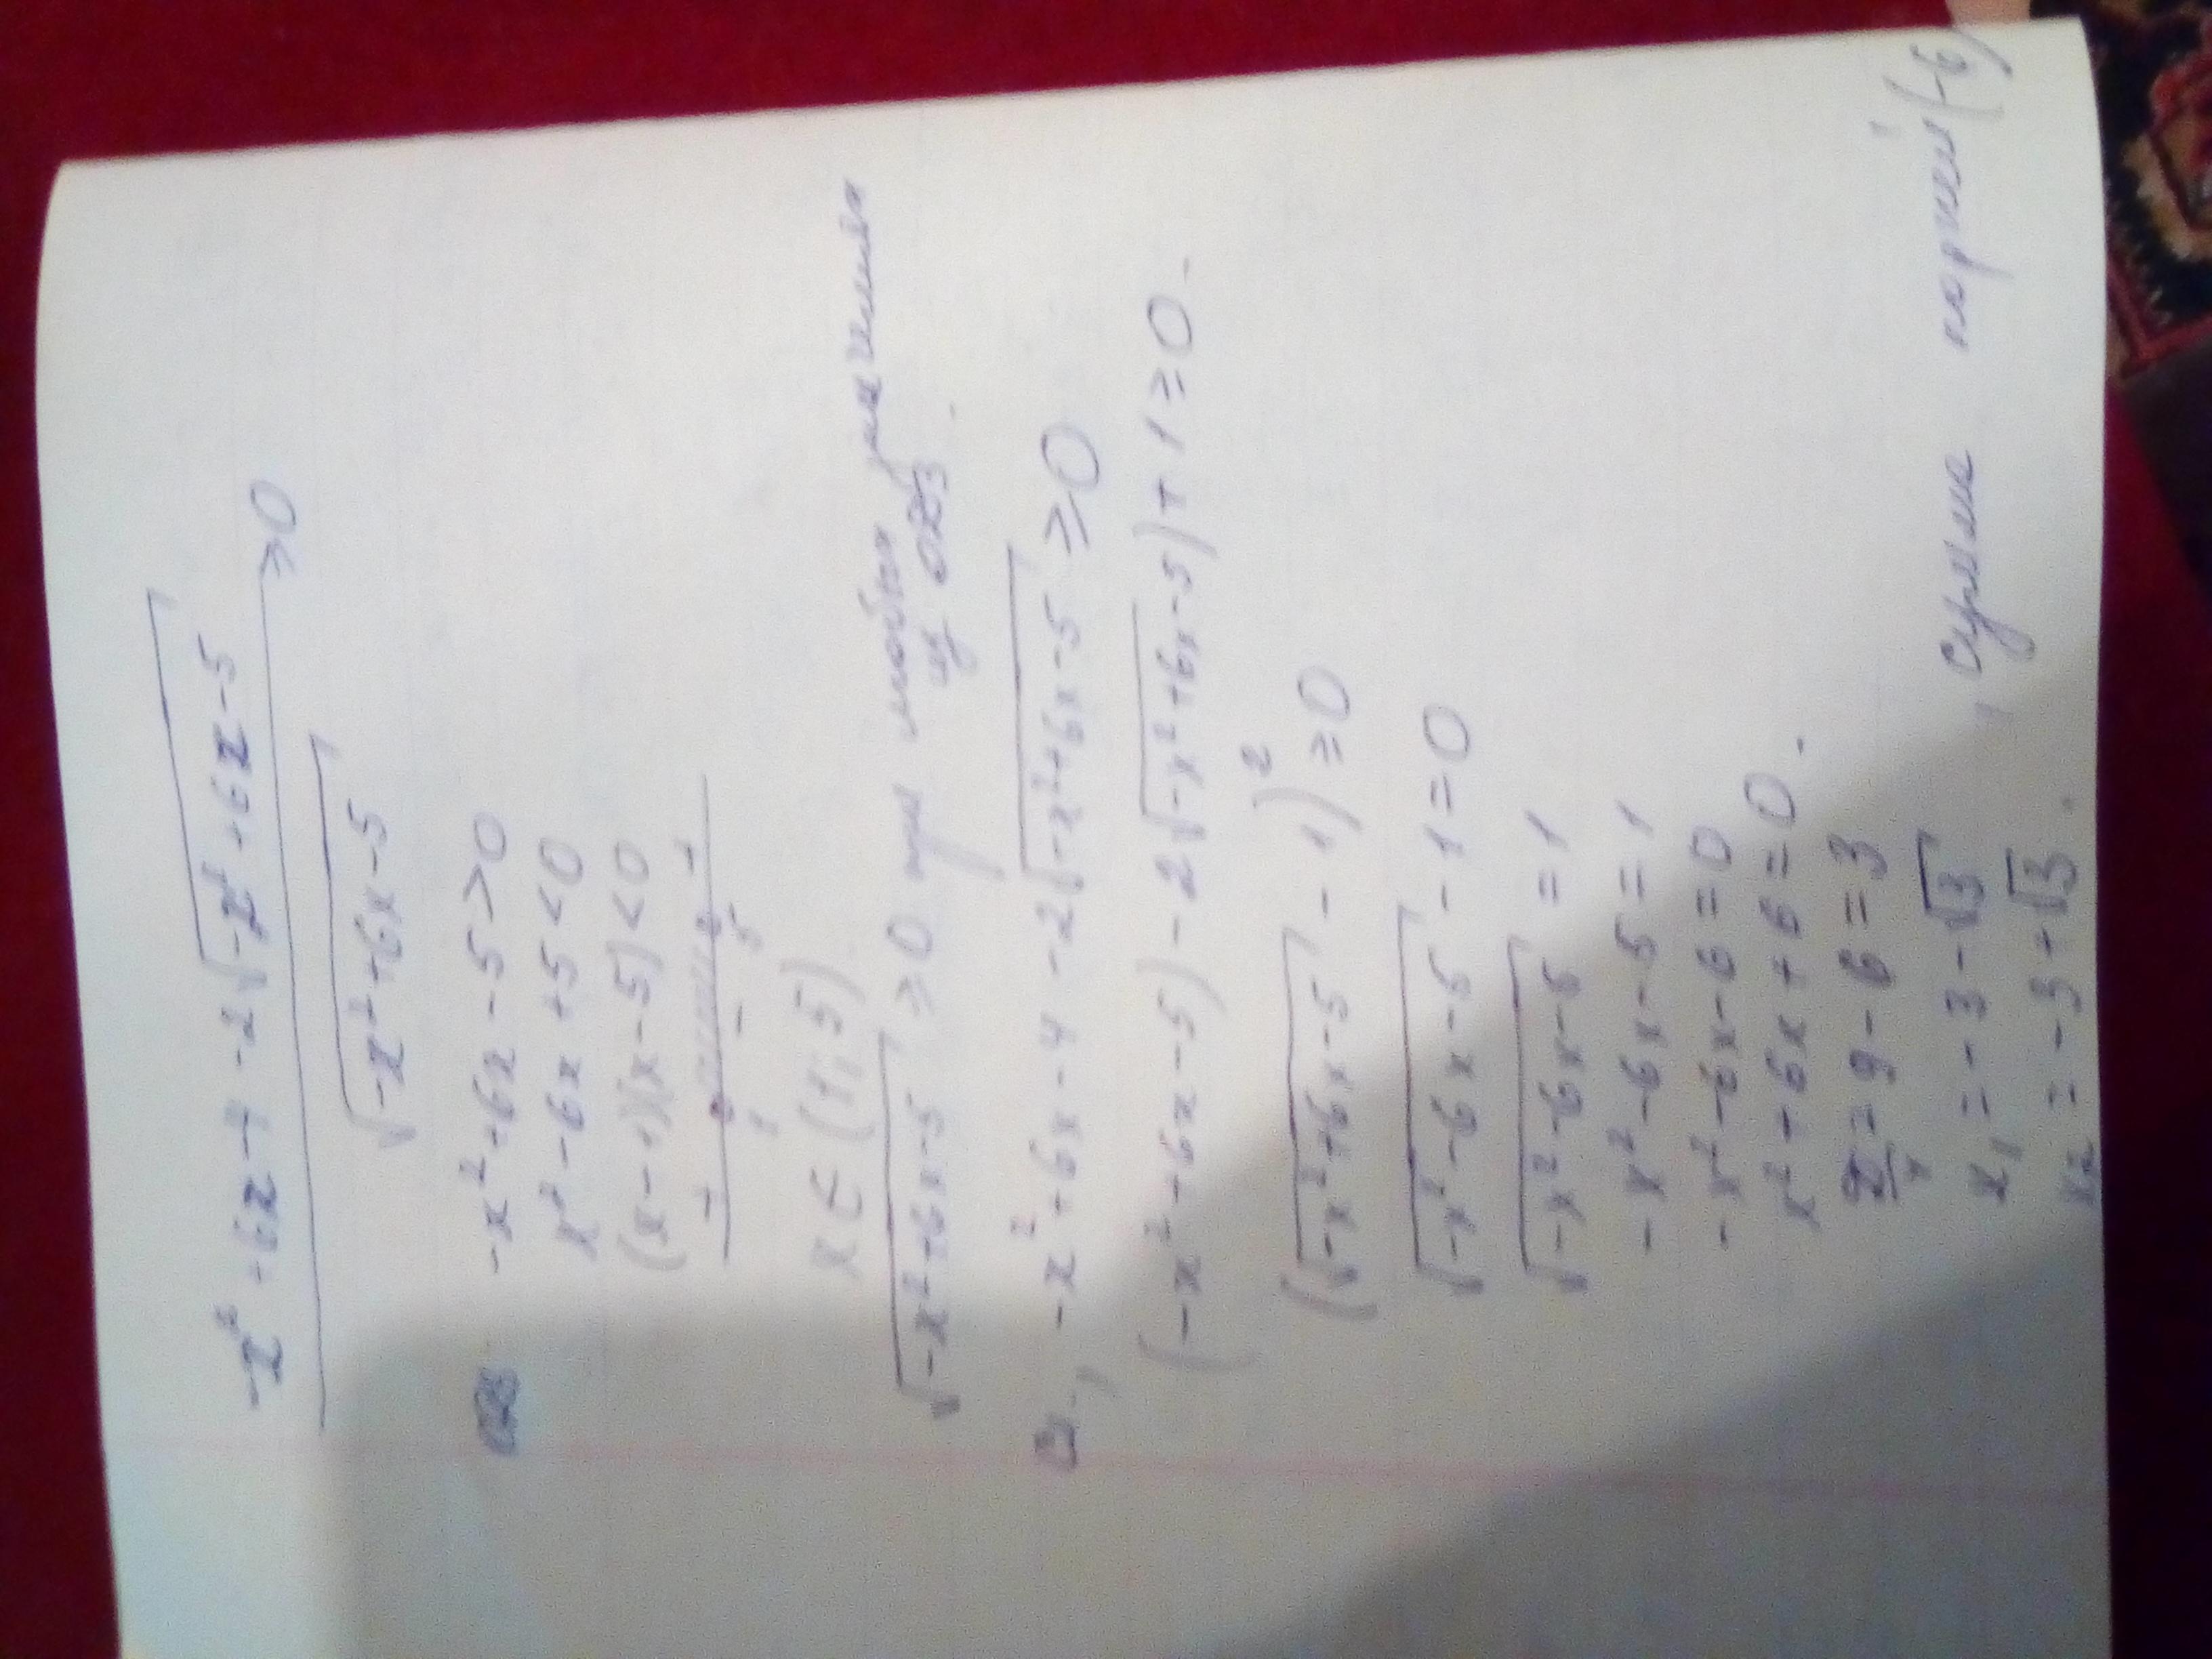 -x² + 6x - 4 - 2√(-x² + 6x - 5)
≥ 0
√(-x² + 6x - 5)
-x² + 6x - 5 > 0
x² - 6x + 5 < 0
(x - 1)(x - 5) < 0
+ - +
1 5
x ∈ (1; 5)
√(-x² + 6x - 5) ≥ 0 при любом значении
из ОДЗ.
-x² + 6x - 4 - 2√(-x² + 6x - 5) ≥ 0
(-x² + 6x - 5) - 2√(-x² + 6x - 5) + 1 ≥ 0.
(√(-x² + 6x - 5) - 1)² ≥ 0
√(-x² - 6x - 5) - 1 = 0
√(-x² - 6x - 5) = 1
-x² - 6x - 5 = 1
-x² - 6x - 6 = 0
x² + 6x + 6 = 0.
D/4 = 9 - 6 = 3
x₁ = -3 - √3, сумма корней (-6)
x₂ = -3 + √3.